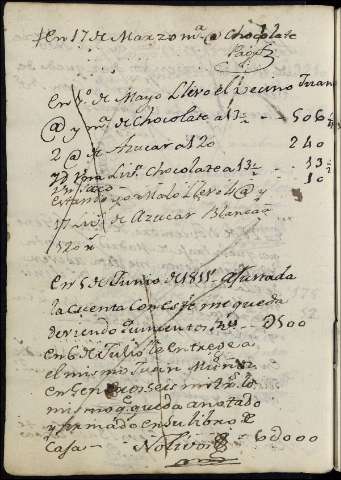 en 17 de Marzo m.ª @ Chocolate
Pago
en 1.º de Mayo Llevo el Vecino Juan
@ y m.ª de Chocolate a 13½ -- 506¼
2 @ de Azucar a 120 240
Chocolate a 13½ -- 13½
10
Estando yo malo Llevo 4 @ y
17 Lib.s de Azucar Blanca
120 r.
en 5 de Junio de 1811 Ajustada
la Cuenta Con este me queda
deviendo quinientos r.s -- D500
en 6 de Julio le Entregue a
el mismo Juan Muñoz
en Jen seis mil r.s lo
mismo q.e queda anotado
y firmado en su libro de
Casa - No Livor -- 6D000